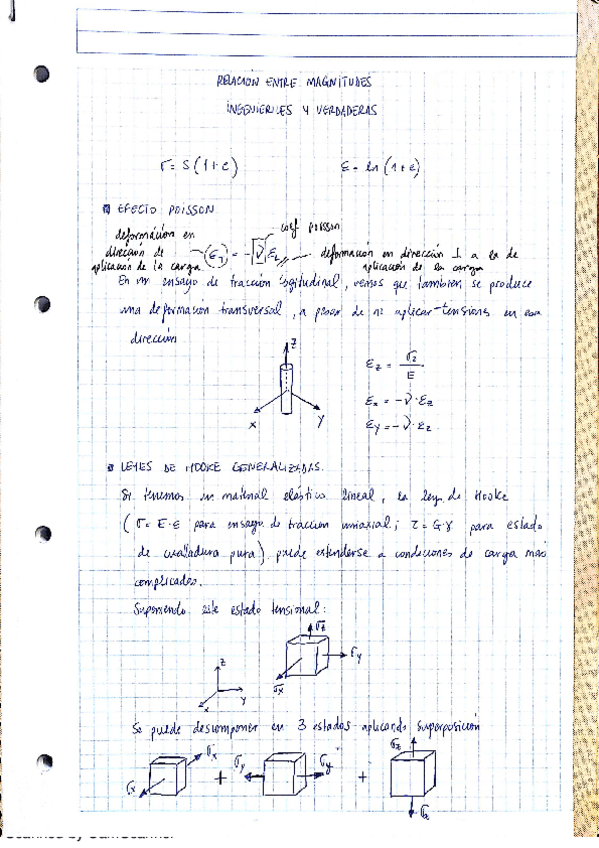 RELACIÓN ENTRE MAGNITUDES
INGENIERILES Y VERDADERAS
σ = S(1+e)
ε = ln(1+e)
EFECTO POISSON
deformación en dirección de aplicación de la carga
coef poisson
= -ν ε
deformación en dirección ⊥ a la de aplicación de la carga
En un ensayo de tracción logitudinal, vemos que también se produce
una deformación transversal, a pesar de no aplicar tensiones en esa
dirección
z
x
y
εz = σz / E
εx = -ν·εz
εy = -ν·εz
LEYES DE HOOKE GENERALIZADAS.
Si tenemos un material elástico lineal, la ley de Hooke
(σ = E·ε para ensayo de tracción uniaxial; τ = G·γ para estado
de cizalladura pura) puede extenderse a condiciones de carga más
complicadas.
Suponiendo este estado tensional:
σz
σy
σx
z
y
x
Se puede descomponer en 3 estados aplicando superposición
σx
σx
+
σy
σy
+
σz
σz